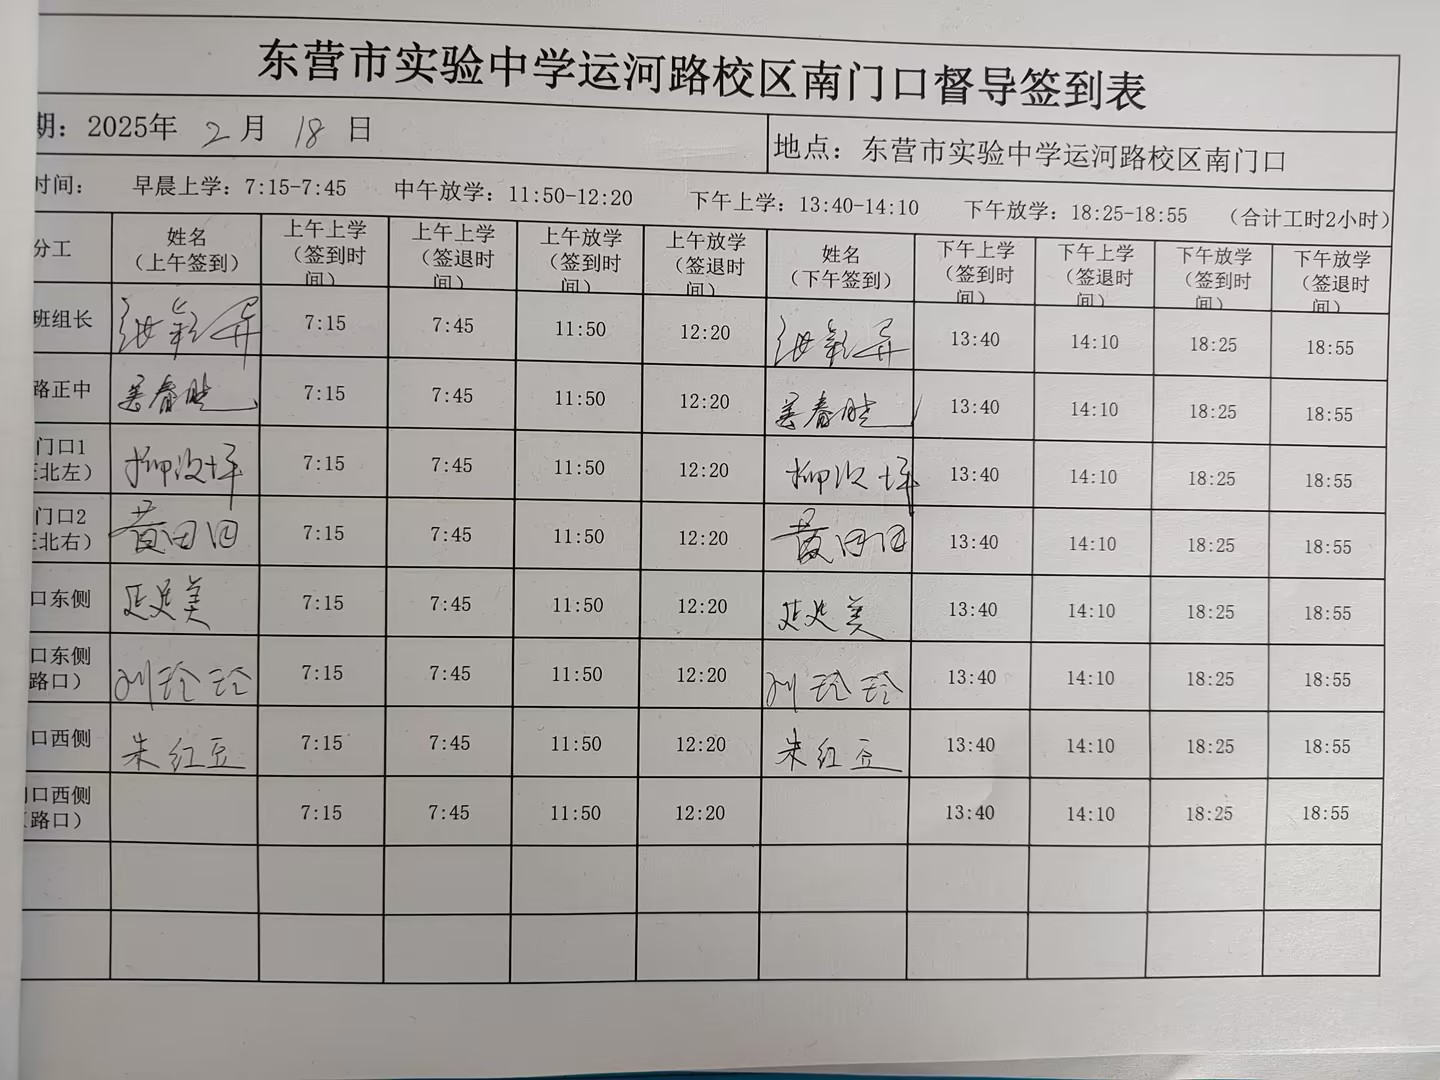 东营市实验中学运河路校区南门口督导签到表
期：2025年 2 月 18 日 地点：东营市实验中学运河路校区南门口
时间： 早晨上学：7:15-7:45 中午放学：11:50-12:20 下午上学：13:40-14:10 下午放学：18:25-18:55 （合计工时2小时）
分工 姓名（上午签到） 上午上学（签到时间） 上午上学（签退时间） 上午放学（签到时间） 上午放学（签退时间） 姓名（下午签到） 下午上学（签到时间） 下午上学（签退时间） 下午放学（签到时间） 下午放学（签退时间）
班组长 7:15 7:45 11:50 12:20 13:40 14:10 18:25 18:55
路正中 7:15 7:45 11:50 12:20 13:40 14:10 18:25 18:55
门口1 北左） 7:15 7:45 11:50 12:20 13:40 14:10 18:25 18:55
门口2 北右） 7:15 7:45 11:50 12:20 13:40 14:10 18:25 18:55
口东侧 7:15 7:45 11:50 12:20 13:40 14:10 18:25 18:55
口东侧 路口） 刘玲玲 7:15 7:45 11:50 12:20 刘玲玲 13:40 14:10 18:25 18:55
口西侧 朱红豆 7:15 7:45 11:50 12:20 朱红豆 13:40 14:10 18:25 18:55
口西侧 路口） 7:15 7:45 11:50 12:20 13:40 14:10 18:25 18:55